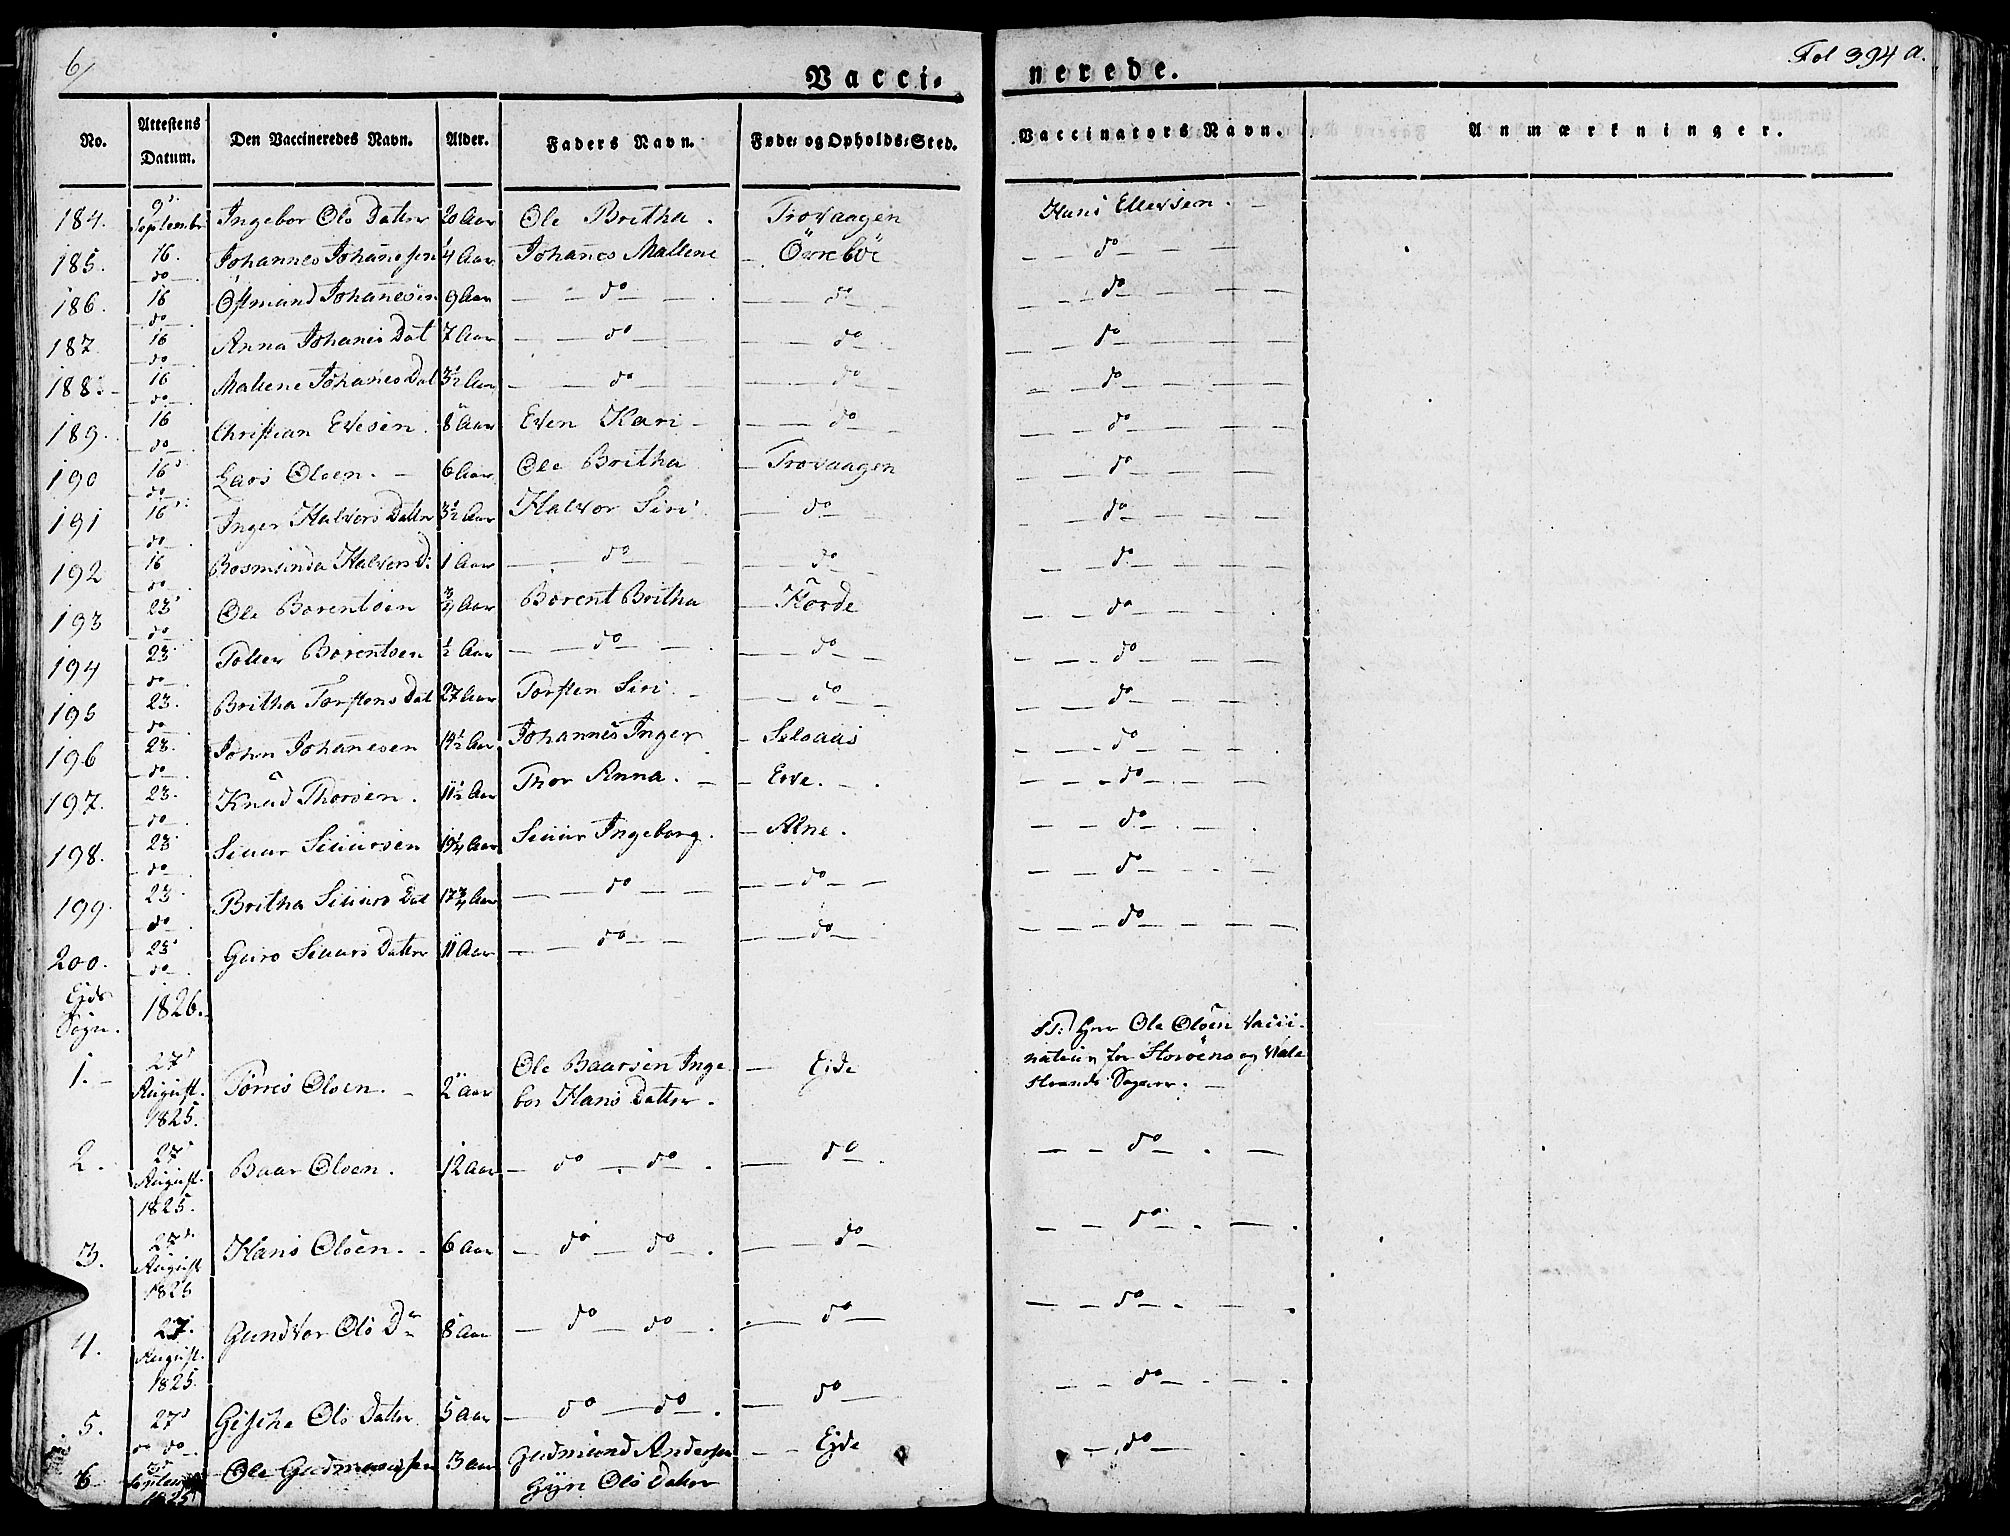 6/
Vacci-
nerede.
Fol 394 a.
No. Attestens Datum. Den Vaccineredes Navn. Alder. Faders Navn. Føde- og Opholds-Sted. Vaccinators Navn. Anmærkninger.
184. 9de September Ingebor Ols Datter 20 Aar Ole Britha. Trovaagen Hans Ellersen.
185. 16. do Johannes Johanesen 1/4 Aar Johanes Mallene Örreböe do
186. 16 do Östmund Johanesen 9 Aar do do do
187. 16 do Anna Johanes Dat 7 Aar do do do
188. 16 do Malene Johanes Dat 3 1/2 Aar do do do
189. 16 do Christian Evesen. 8 Aar Even Kari do do
190 16 do Lars Olsen. 6 Aar Ole Britha Trovaagen do
191 16 do Inger Halvors Datter 3 1/2 Aar Halvor Siri do do
192 16 do Rosmunda Halvors D: 1 Aar do do do
193 23 do Ole Borentsen 3/4 Aar Borent Britha do
194 23 do Borentsen 1/2 Aar do do do
195 23. do Britha Torstens Dat 27 Aar Torsten Siri do do
196 23. do John Johanesen 14 1/2 Aar Johannes Inger Selsaas do
197. 23. do Knud Thorsen. 11 1/2 Aar Thor Anna. Erve. do
198. 23 do Siuur Siuursen 19 1/4 Aar Siuur Ingeborg. Alne. do
199 23 do Britha Siuurs Dat 17 3/4 Aar do do do
200. 23 do Guro Siuurs Datter 11 Aar do do do
Ejds Sogn. 1826.
1. 27 August. 1825. Torres Olsen. 2 Aar Ole Baarsen Inge
bor Hans Datter. Ejde ST: Herr Ole Olsen Vacci-
nateur for Storöens og
Strands Sogner.
2. 27 August. 1825. Baar Olsen. 12 Aar do do. do. do
3. 27 August 1825 Hans Olsen. 6 Aar do do. do do
4. 27. August. 1825. Gundvor Ols D 8 Aar do do. do do
5. 27 do Ols Datter 5 Aar do do. do do
6 3 September 1825 Ole Gudmundsen 3 Aar Gudmund Andersen
Gyri Ols Datter Ejde do